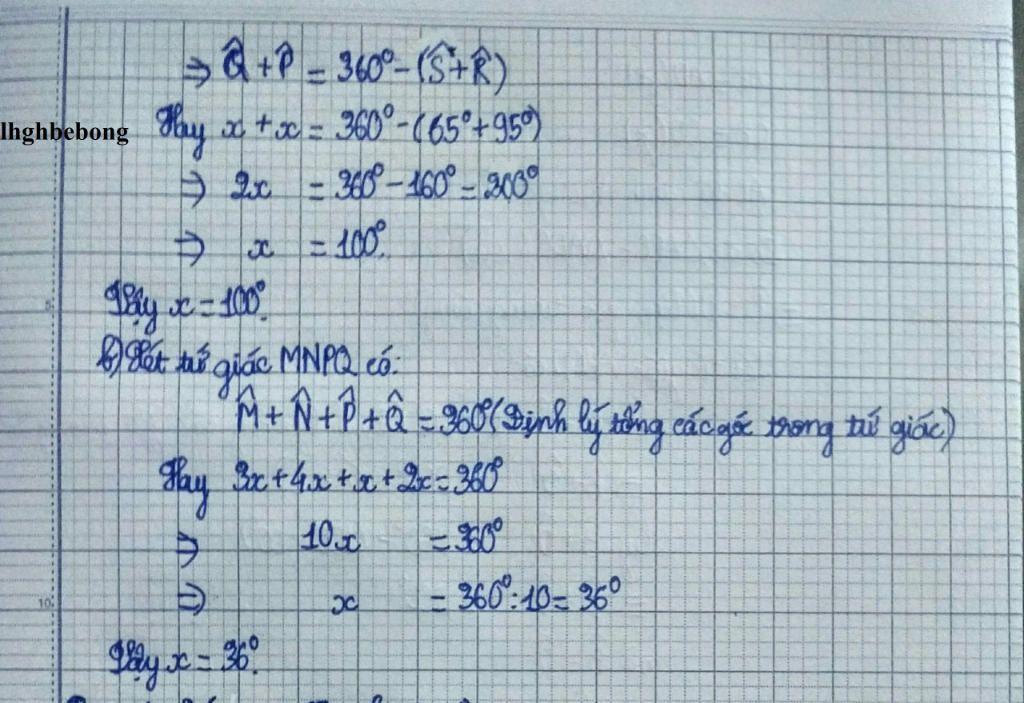 ⇒ Q̂ + P̂ = 360° - (Ŝ + R̂)
lhghbebong
Hay x + x = 360° - (65° + 95°)
⇒ 2x = 360° - 160° = 200°
⇒ x = 100°.
Vậy x = 100°.
b) Xét tứ giác MNPQ có:
M̂ + N̂ + P̂ + Q̂ = 360° (Định lý tổng các góc trong tứ giác)
Hay 3x + 4x + x + 2x = 360°
⇒ 10x = 360°
10
⇒ x = 360° : 10 = 36°
Vậy x = 36°.